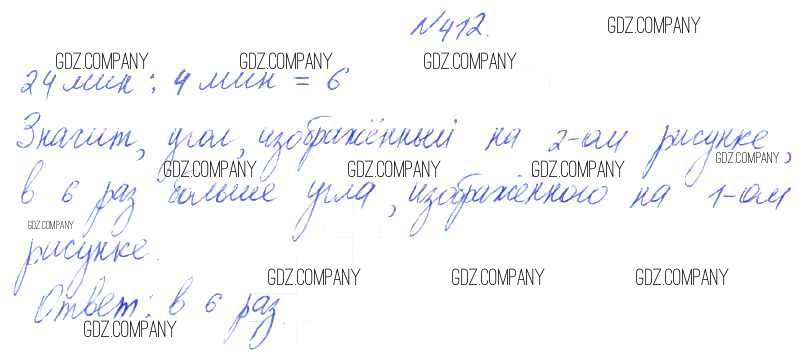 №412.
GDZ.COMPANY
GDZ.COMPANY GDZ.COMPANY GDZ.COMPANY
24 мин : 4 мин = 6
Значит, угол, изображённый на 2-ом рисунке,
GDZ.COMPANY
GDZ.COMPANY GDZ.COMPANY GDZ.COMPANY
в 6 раз больше угла, изображённого на 1-ом
GDZ.COMPANY
рисунке.
GDZ.COMPANY GDZ.COMPANY GDZ.COMPANY
Ответ: в 6 раз.
GDZ.COMPANY